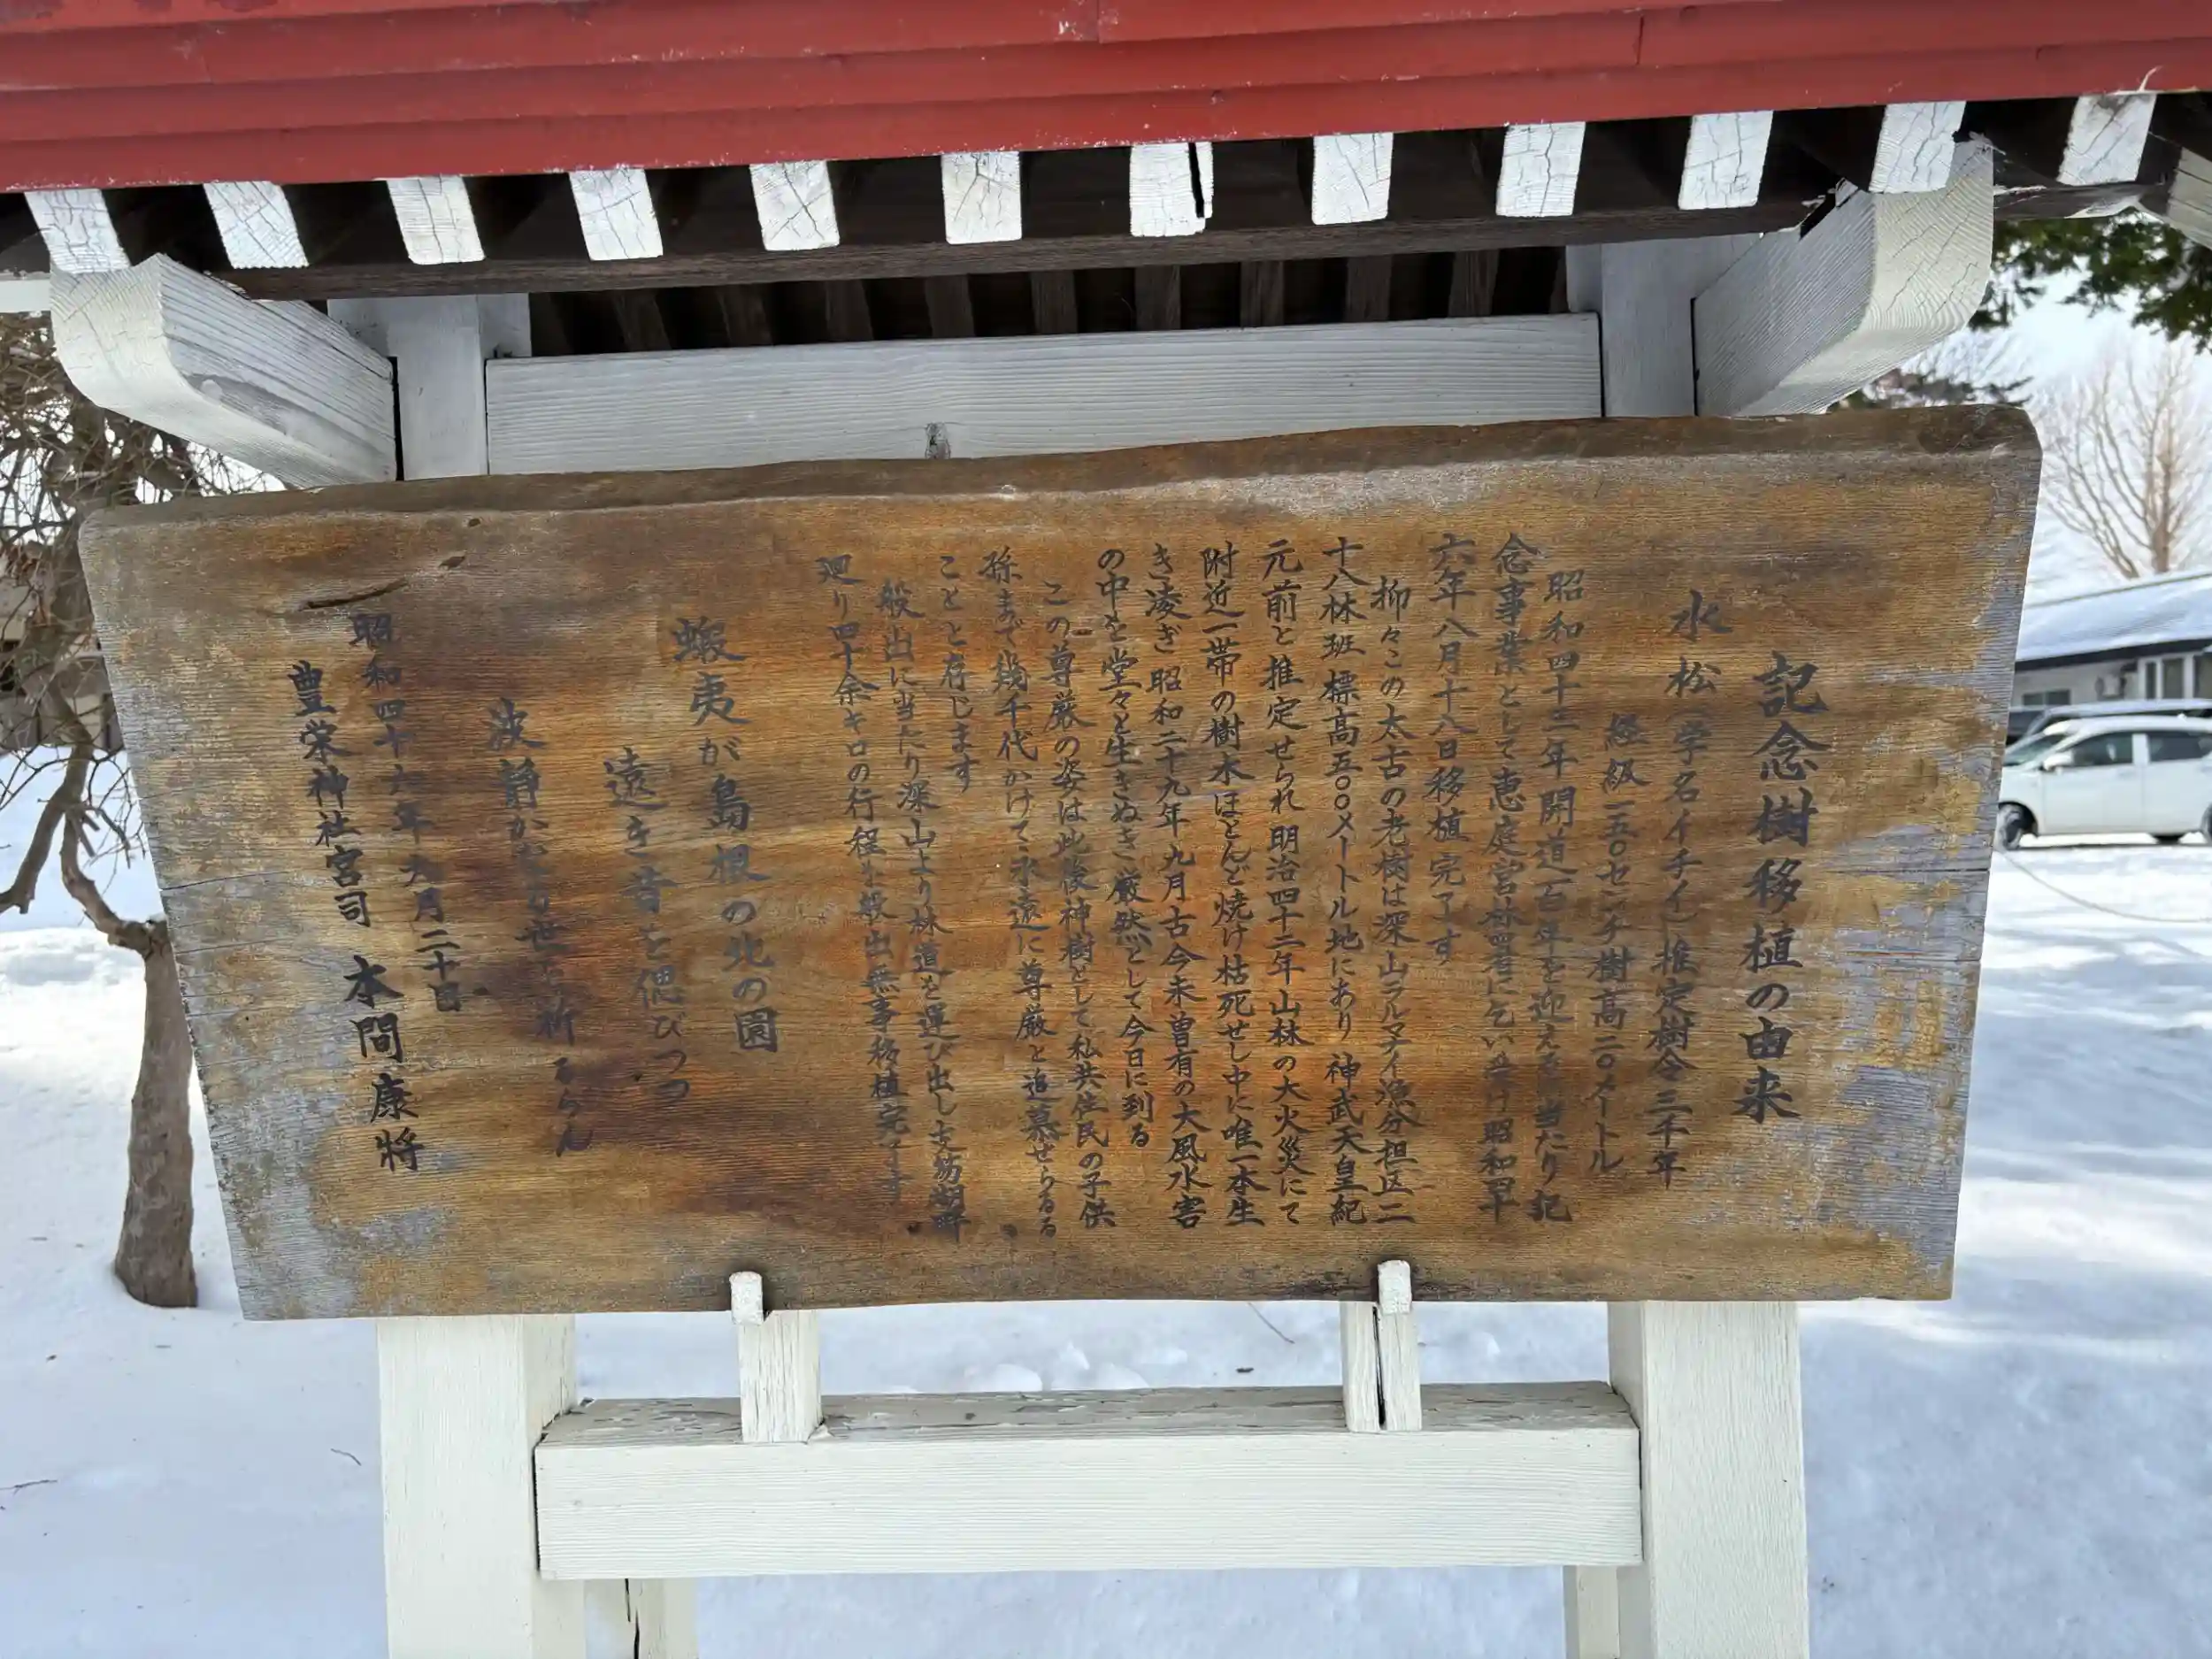 記念樹移植の由来
水松(学名イチイ)推定樹令三千年
経級一五〇センチ樹高二〇メートル
昭和四十三年開道百年を迎えるに当たり記
念事業として恵庭営林署に乞い受け昭和四十
六年八月十八日移植完了す
抑々この太古の老樹は深山ラルマナイ漁分担区二
十八林班標高五〇〇メートル地にあり 神武天皇紀
元前と推定せられ 明治四十二年山林の大火災にて
附近一帯の樹木ほとんど焼け枯死せし中に唯一本生
き凌ぎ 昭和二十九年九月古今未曽有の大風水害
の中を堂々と生きぬき厳然として今日に到る
この尊厳の姿は此後神樹として私共住民の子供
孫まで幾千代かけて永遠に尊厳と追慕せらるる
ことと存じます
般出に当たり深山より林道を運び出し支笏湖畔
廻り四十余キロの行程を般出無事移植完了す
蝦夷が島根の北の園
遠き昔を偲びつつ
波静かなる世を祈るらん
昭和四十六年九月二十日
豊栄神社宮司 本間康將